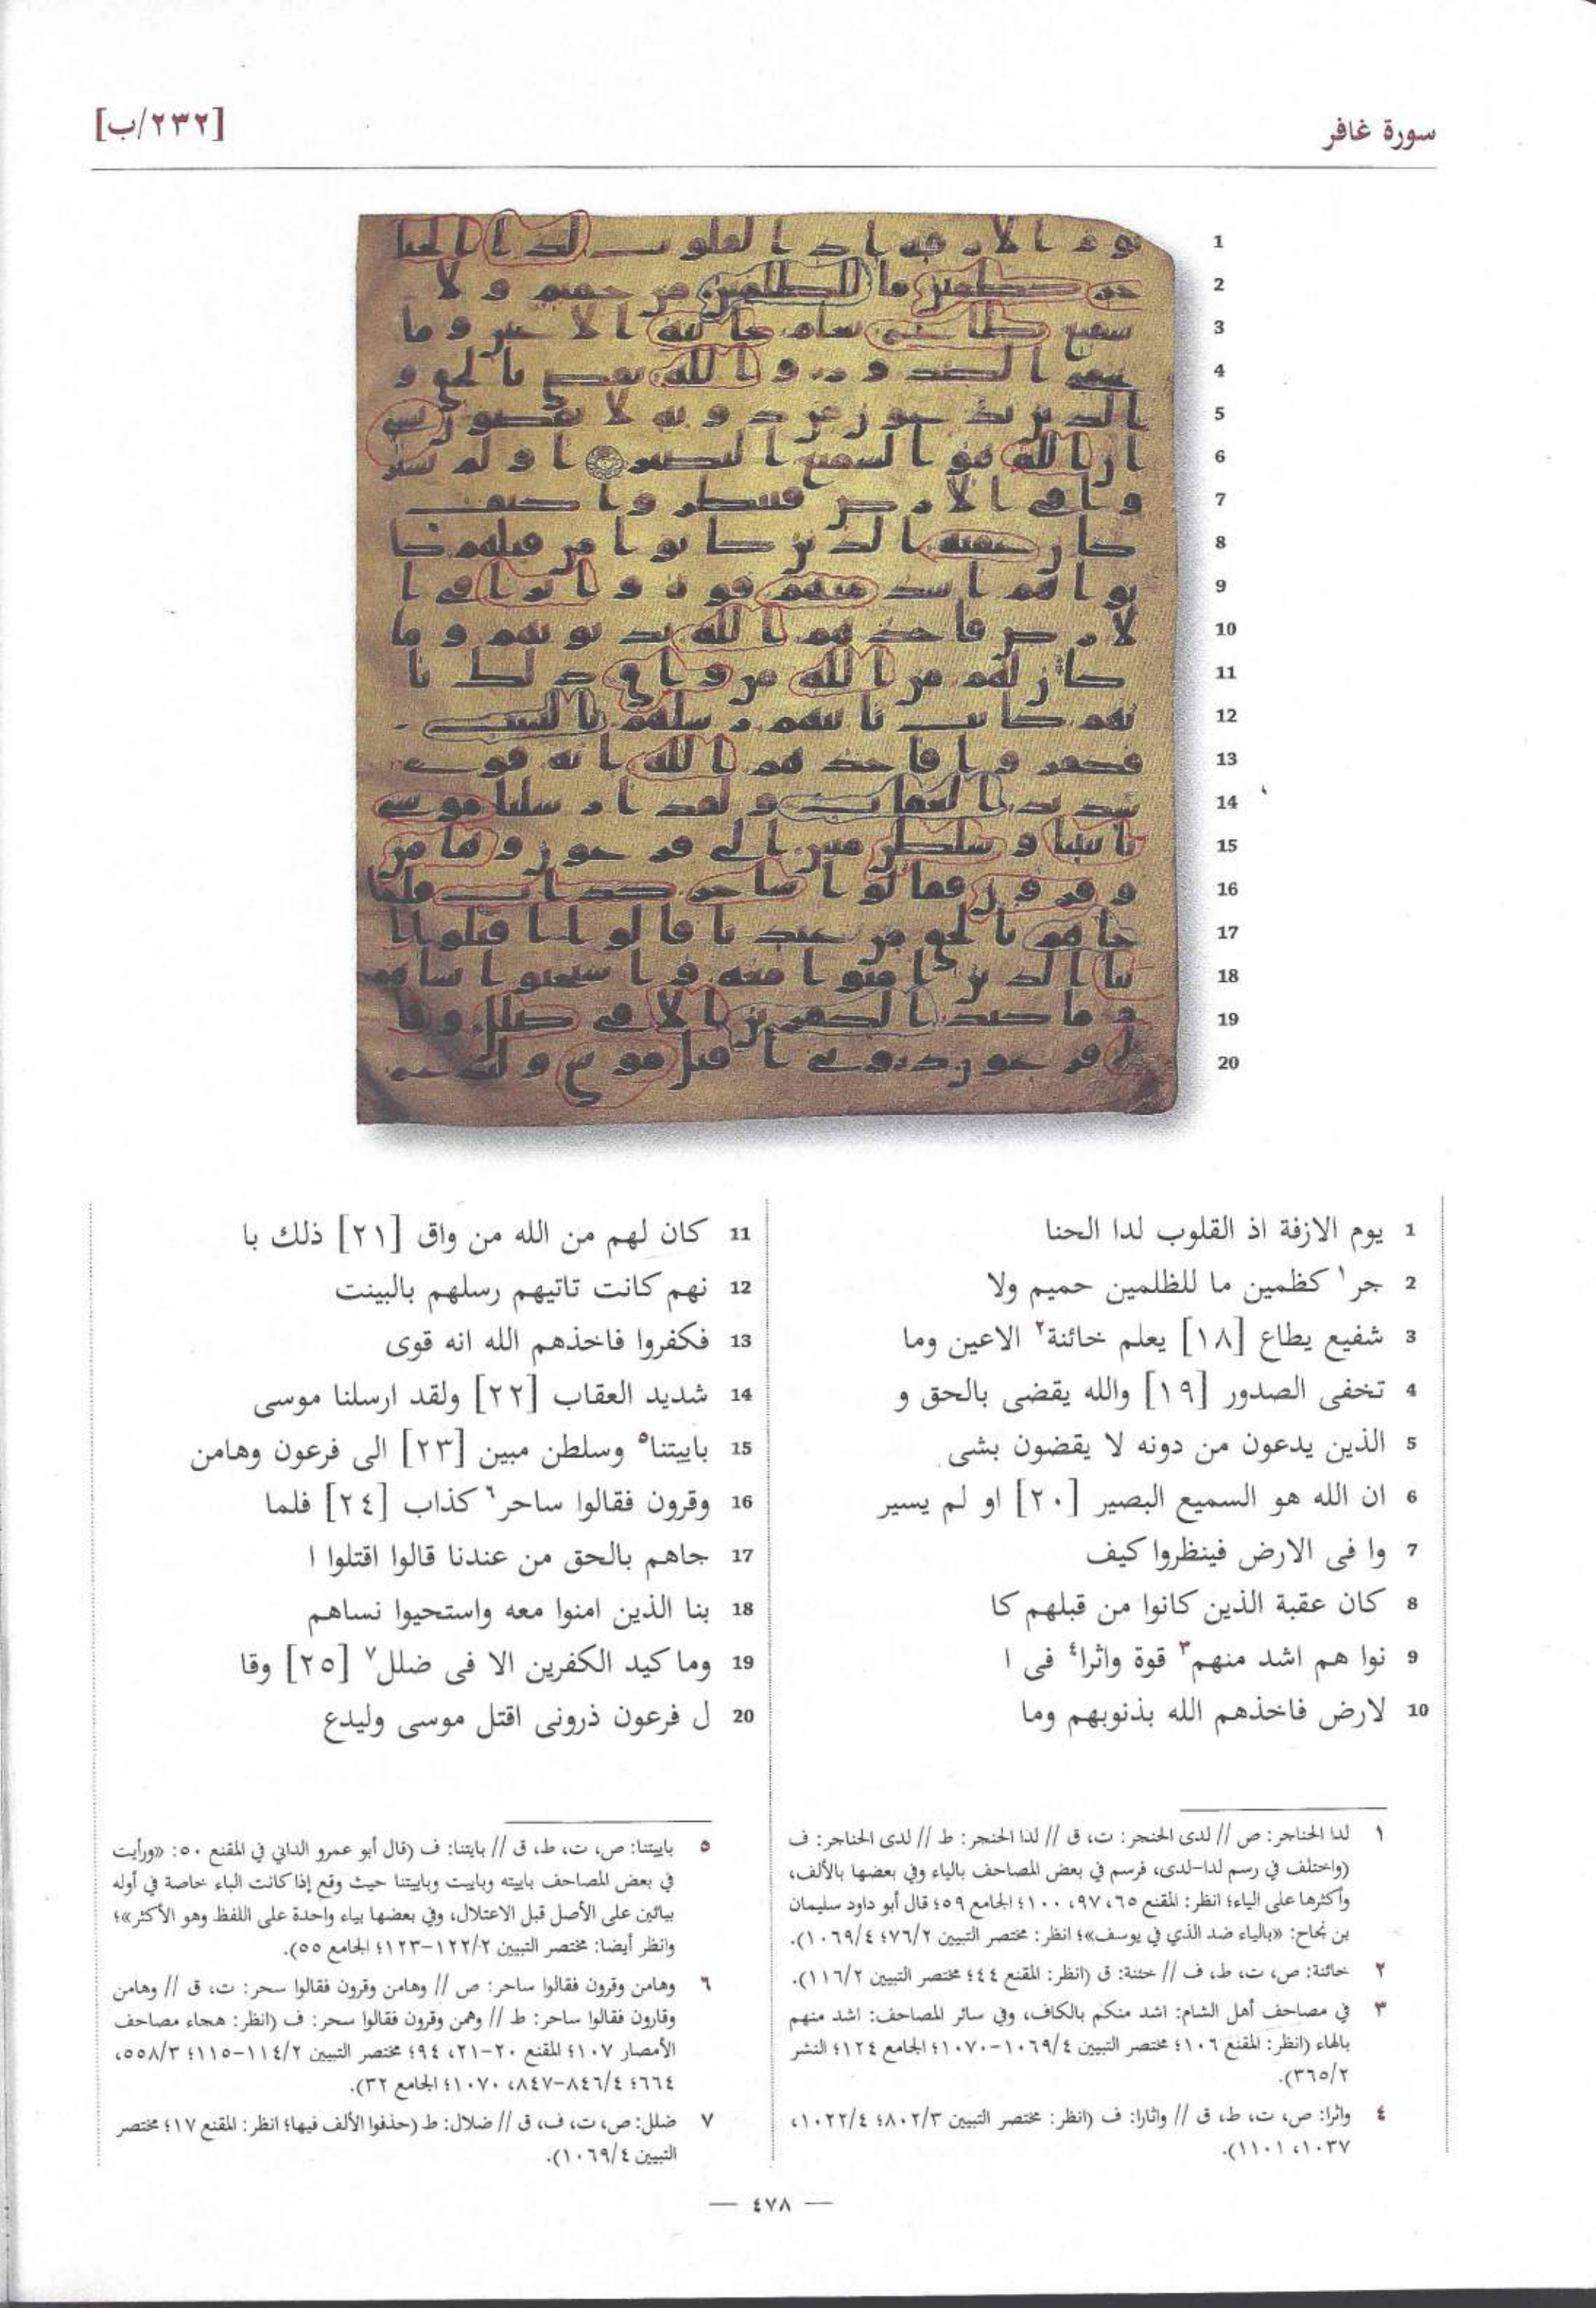 سورة غافر
[٢٣٢/ب]
1 يوم الازفة اذ القلوب لدا الحنا
2 جر١ كظمين ما للظلمين حميم ولا
3 شفيع يطاع [١٨] يعلم خائنة٢ الاعين وما
4 تخفى الصدور [١٩] والله يقضى بالحق و
5 الذين يدعون من دونه لا يقضون بشى
6 ان الله هو السميع البصير [٢٠] او لم يسير
7 وا فى الارض فينظروا كيف
8 كان عقبة الذين كانوا من قبلهم كا
9 نوا هم اشد منهم٣ قوة واثرا٤ فى ا
10 لارض فاخذهم الله بذنوبهم وما
11 كان لهم من الله من واق [٢١] ذلك با
12 نهم كانت تاتيهم رسلهم بالبينت
13 فكفروا فاخذهم الله انه قوى
14 شديد العقاب [٢٢] ولقد ارسلنا موسى
15 باييتنا٥ وسلطن مبين [٢٣] الى فرعون وهامن
16 وقرون فقالوا ساحر٦ كذاب [٢٤] فلما
17 جاهم بالحق من عندنا قالوا اقتلوا ا
18 بنا الذين امنوا معه واستحيوا نساهم
19 وما كيد الكفرين الا فى ضلل٧ [٢٥] وقا
20 ل فرعون ذرونى اقتل موسى وليدع
١ لدا الحناجر: ص // لدى الحنجر: ت، ق // لذا الحنجر: ط // لدى الحناجر: ف
(واختلف في رسم لدا-لدى، فرسم في بعض المصاحف بالياء وفي بعضها بالألف،
وأكثرها على الياء؛ انظر: المقنع ٦٥، ٩٧، ١٠٠؛ الجامع ٥٩؛ قال أبو داود سليمان
بن نجاح: «بالياء ضد الذي في يوسف»؛ انظر: مختصر التبيين ٧٦/٢؛ ١٠٦٩/٤).
٢ خائنة: ص، ت، ط، ف // خئنة: ق (انظر: المقنع ٤٤؛ مختصر التبيين ١١٦/٢).
٣ في مصاحف أهل الشام: اشد منكم بالكاف، وفي سائر المصاحف: اشد منهم
بالهاء (انظر: المقنع ١٠٦؛ مختصر التبيين ١٠٦٩/٤-١٠٧٠؛ الجامع ١٢٤؛ النشر
٣٦٥/٢).
٤ واثرا: ص، ت، ط، ق // واثارا: ف (انظر: مختصر التبيين ٨٠٢/٣؛ ١٠٢٢/٤،
١٠٣٧، ١١٠١).
٥ باييتنا: ص، ت، ط، ق // بايتنا: ف (قال أبو عمرو الداني في المقنع ٥٠: «ورأيت
في بعض المصاحف باييته وباييت وباييتنا حيث وقع إذا كانت الباء خاصة في أوله
بيائين على الأصل قبل الاعتلال، وفي بعضها بياء واحدة على اللفظ وهو الأكثر»؛
وانظر أيضا: مختصر التبيين ١٢٢/٢-١٢٣؛ الجامع ٥٥).
٦ وهامن وقرون فقالوا ساحر: ص // وهامن وقرون فقالوا سحر: ت، ق // وهامن
وقارون فقالوا ساحر: ط // وهمن وقرون فقالوا سحر: ف (انظر: هجاء مصاحف
الأمصار ١٠٧؛ المقنع ٢٠-٢١، ٩٤؛ مختصر التبيين ١١٤/٢-١١٥؛ ٥٥٨/٣،
٦٦٤؛ ٨٤٦/٤-٨٤٧، ١٠٧٠؛ الجامع ٣٢).
٧ ضلل: ص، ت، ف، ق // ضلال: ط (حذفوا الألف فيها؛ انظر: المقنع ١٧؛ مختصر
التبيين ١٠٦٩/٤).
— ٤٧٨ —